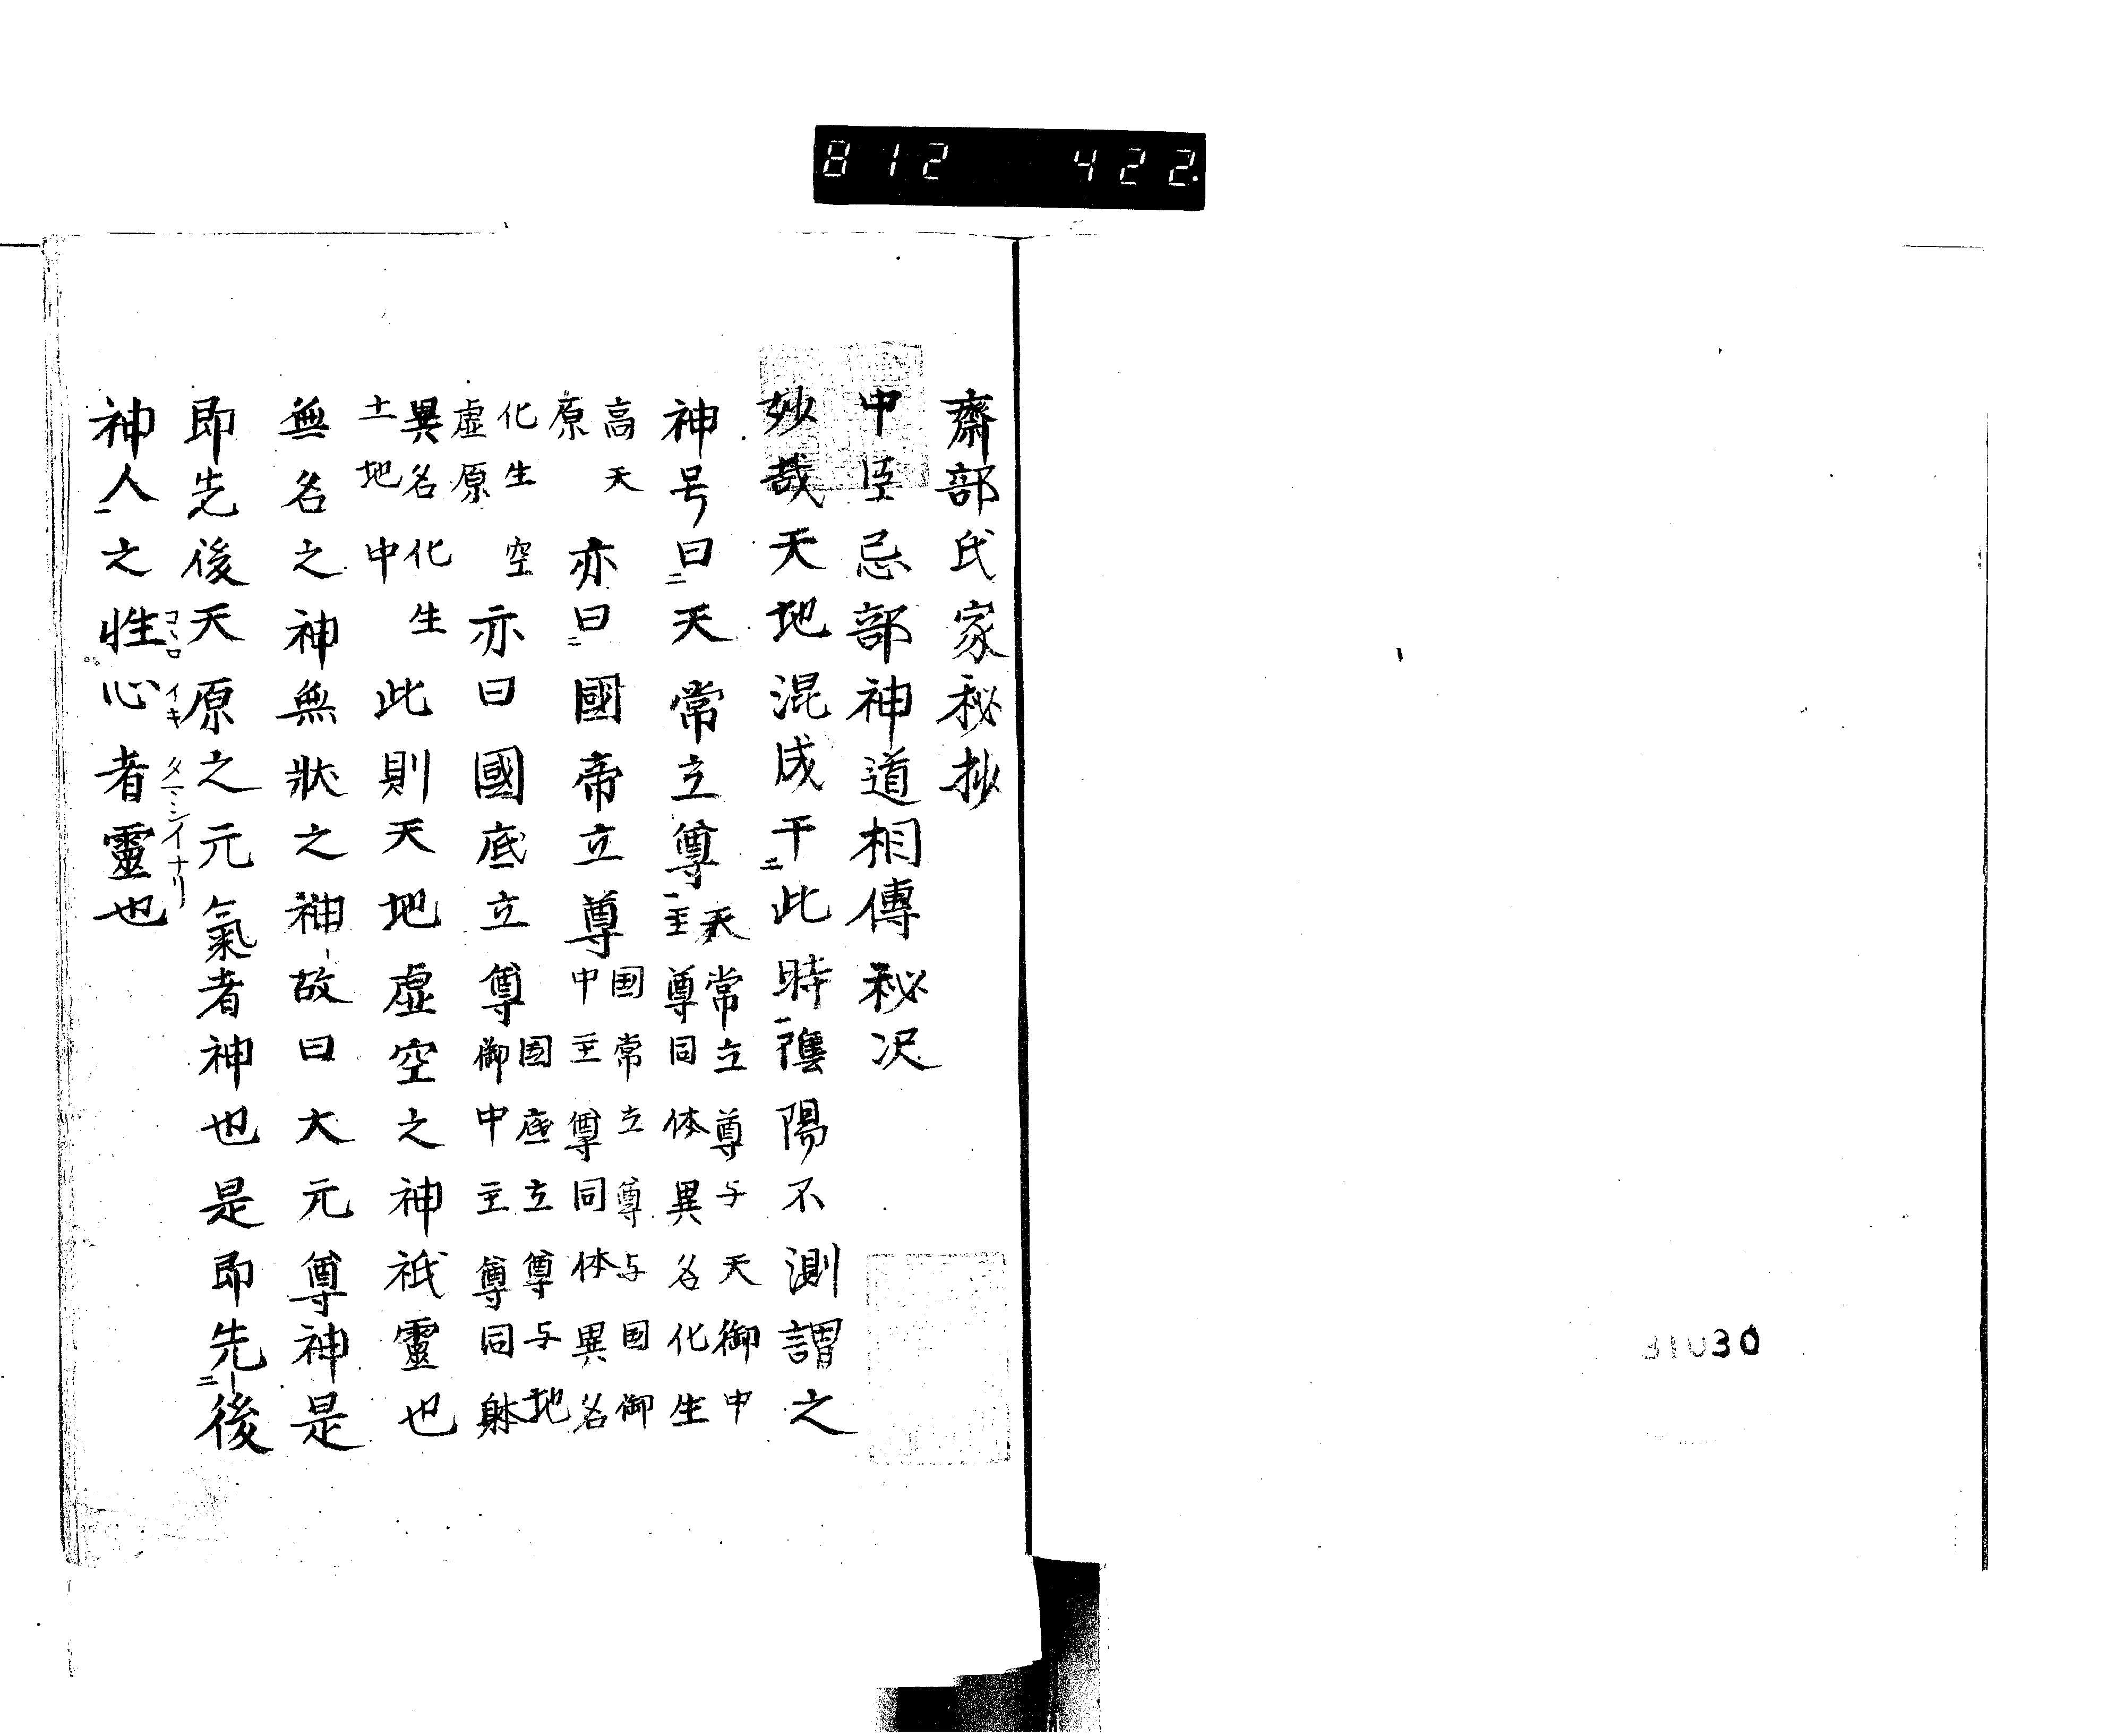 812 422
齋部氏家秘抄
中臣忌部神道相傳秘决
妙哉天地混成干二此時一陽不測謂之
神号曰二天常立尊一天常立尊与天御中
主尊同体異名化生
高天
原亦曰二國帝立尊国常立尊与国御
中主尊同体異名
化生空
虚原亦曰國底立尊国底立尊与地
御中主尊同躰
異名化生
土地中此則天地虚空之神祇靈也
無名之神無狀之神故曰大元尊神是
即先後天原之元氣者神也是即先二後
神人一之性心者靈也
コヽロ イキ タマシイナリ
30